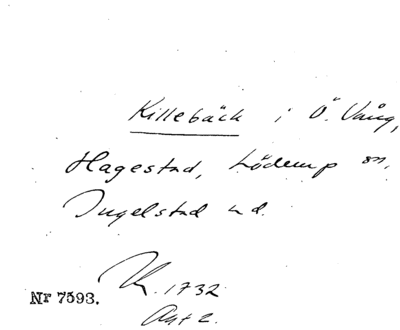 Killebäck i Ö. Vång,
Hagestad, Löderup sn.
Ingelstad hd.
K. 1732
Akt 2.
Nr 7593.